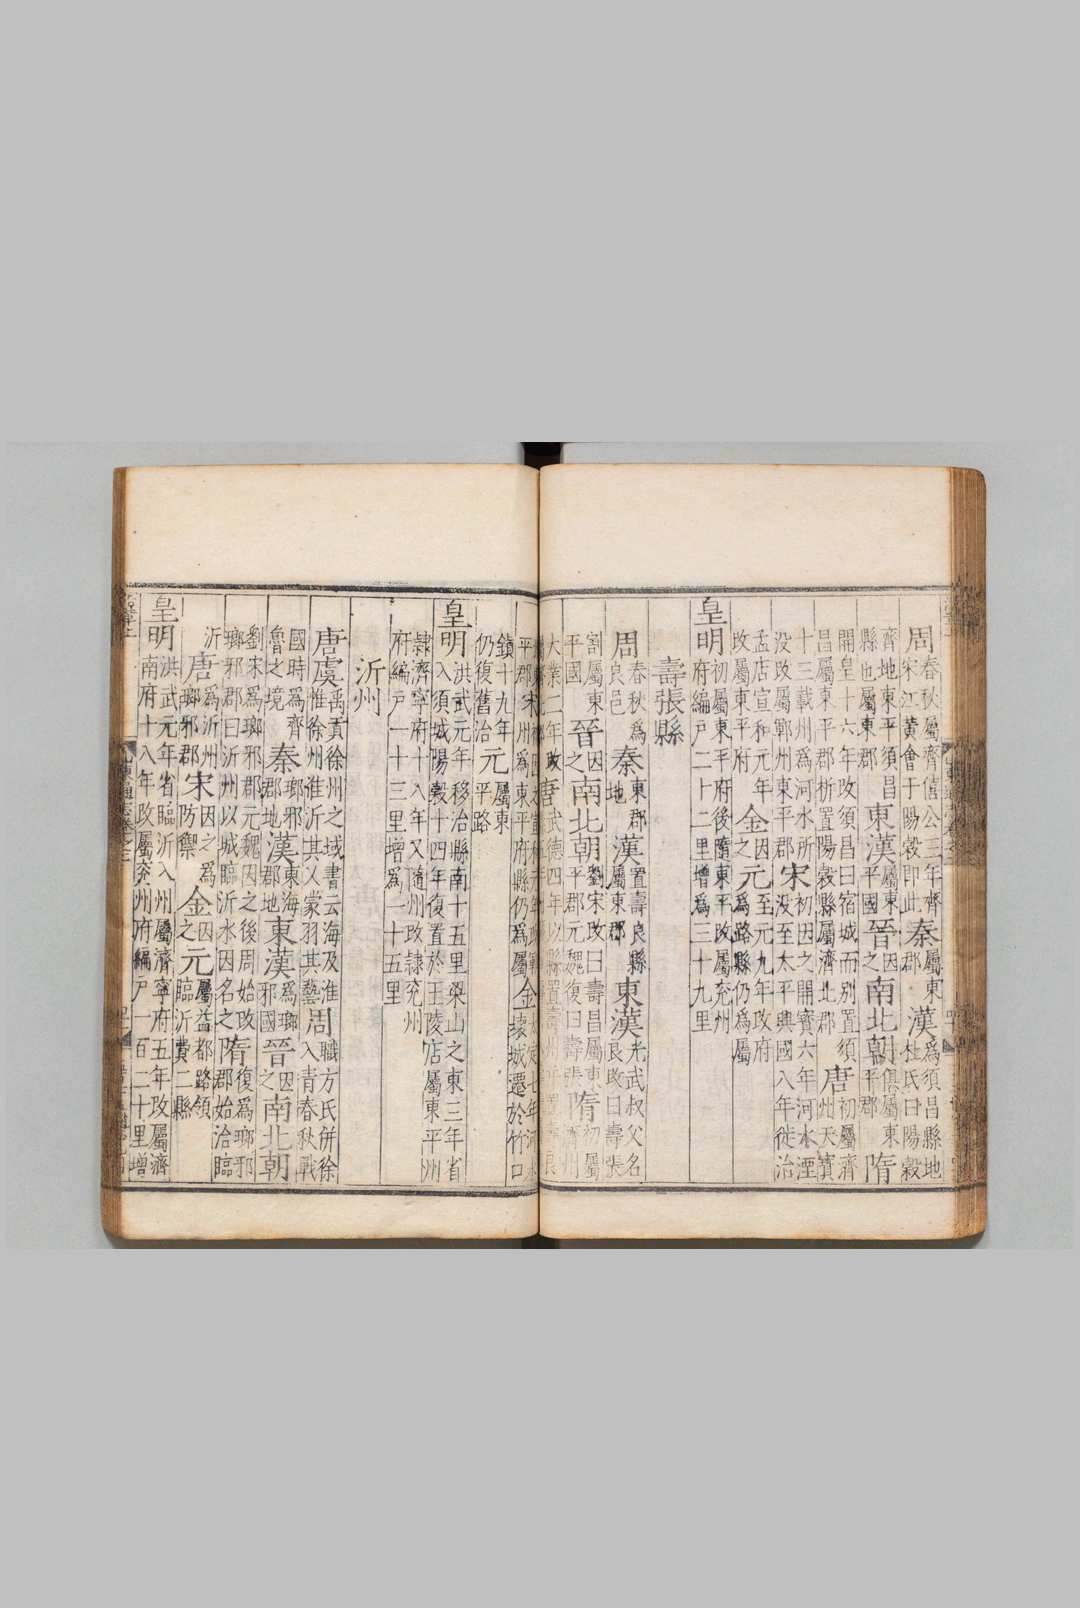 周春秋屬齊僖公三年齊宋江黃會于陽穀即此秦屬東郡漢爲須昌縣地杜氏曰陽穀
齊地東平須昌縣也屬東郡東漢屬東平國晉因之南北朝俱屬東平郡隋
開皇十六年改須昌曰宿城而別置須昌屬東平郡析置陽穀縣屬濟北郡唐初屬濟州天寶
十三載州爲河水所没改屬鄆州東平郡宋初因之開寶六年河水湮没至太平興國八年徙治
孟店宣和元年改屬東平府金因之元至元九年改府爲路縣仍爲屬
皇明初屬東平府後隨東平改屬兗州府編戸二十二里增爲三十九里
壽張縣
周春秋爲良邑秦東郡地漢置壽良縣屬東郡東漢光武叔父名良改曰壽張
割屬東平國晉因之南北朝劉宋改曰壽昌屬東平郡元魏復曰壽張隋初屬州
大業二年改唐武德四年以縣置壽州
平郡宋州爲東平府縣仍爲屬金大定七年河水壞城遷於竹口
鎮十九年仍復舊治元屬東平路
皇明洪武元年移治縣南十五里梁山之東三年省入須城陽穀十四年復置於王陵店屬東平州
隸濟寧府十八年又隨州改隸兗州府編戸一十三里增爲一十五里
沂州
唐虞禹貢徐州之域書云海及淮惟徐州淮沂其乂蒙羽其藝周職方氏併徐入青春秋戰
國時爲齊魯之境秦琅邪郡地漢東海郡地東漢爲琅邪國晉因之南北朝
劉宋爲琅邪郡元魏因之後周始改琅邪郡曰沂州以城臨沂水因名之隋復爲琅邪郡始治臨
沂唐爲沂州琅邪郡宋因之爲防禦金因元屬益都路領臨沂費二縣
皇明洪武元年省臨沂入州屬濟寧府五年改屬濟南府十八年改屬兗州府編戸一百二十里增